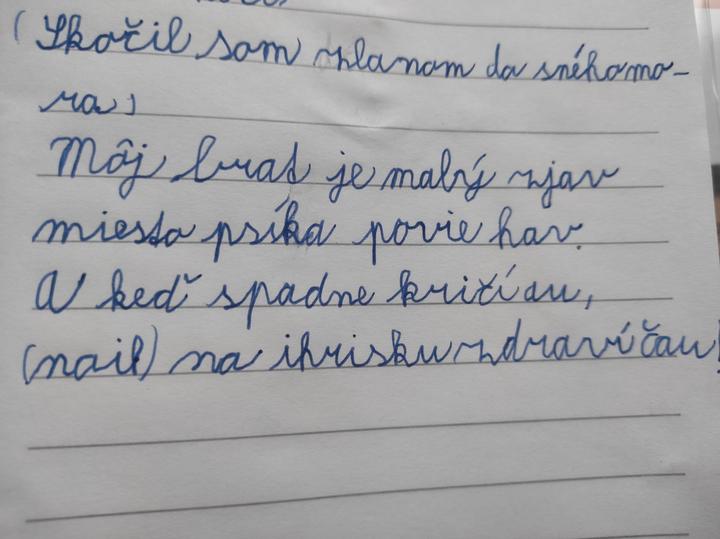 (Skočil som vlanom do sného mo-
ra)
Môj brat je malý zjav
miesto psíka povie hav.
A keď spadne kričí au,
(nail) na ihrisku zdraví čau!